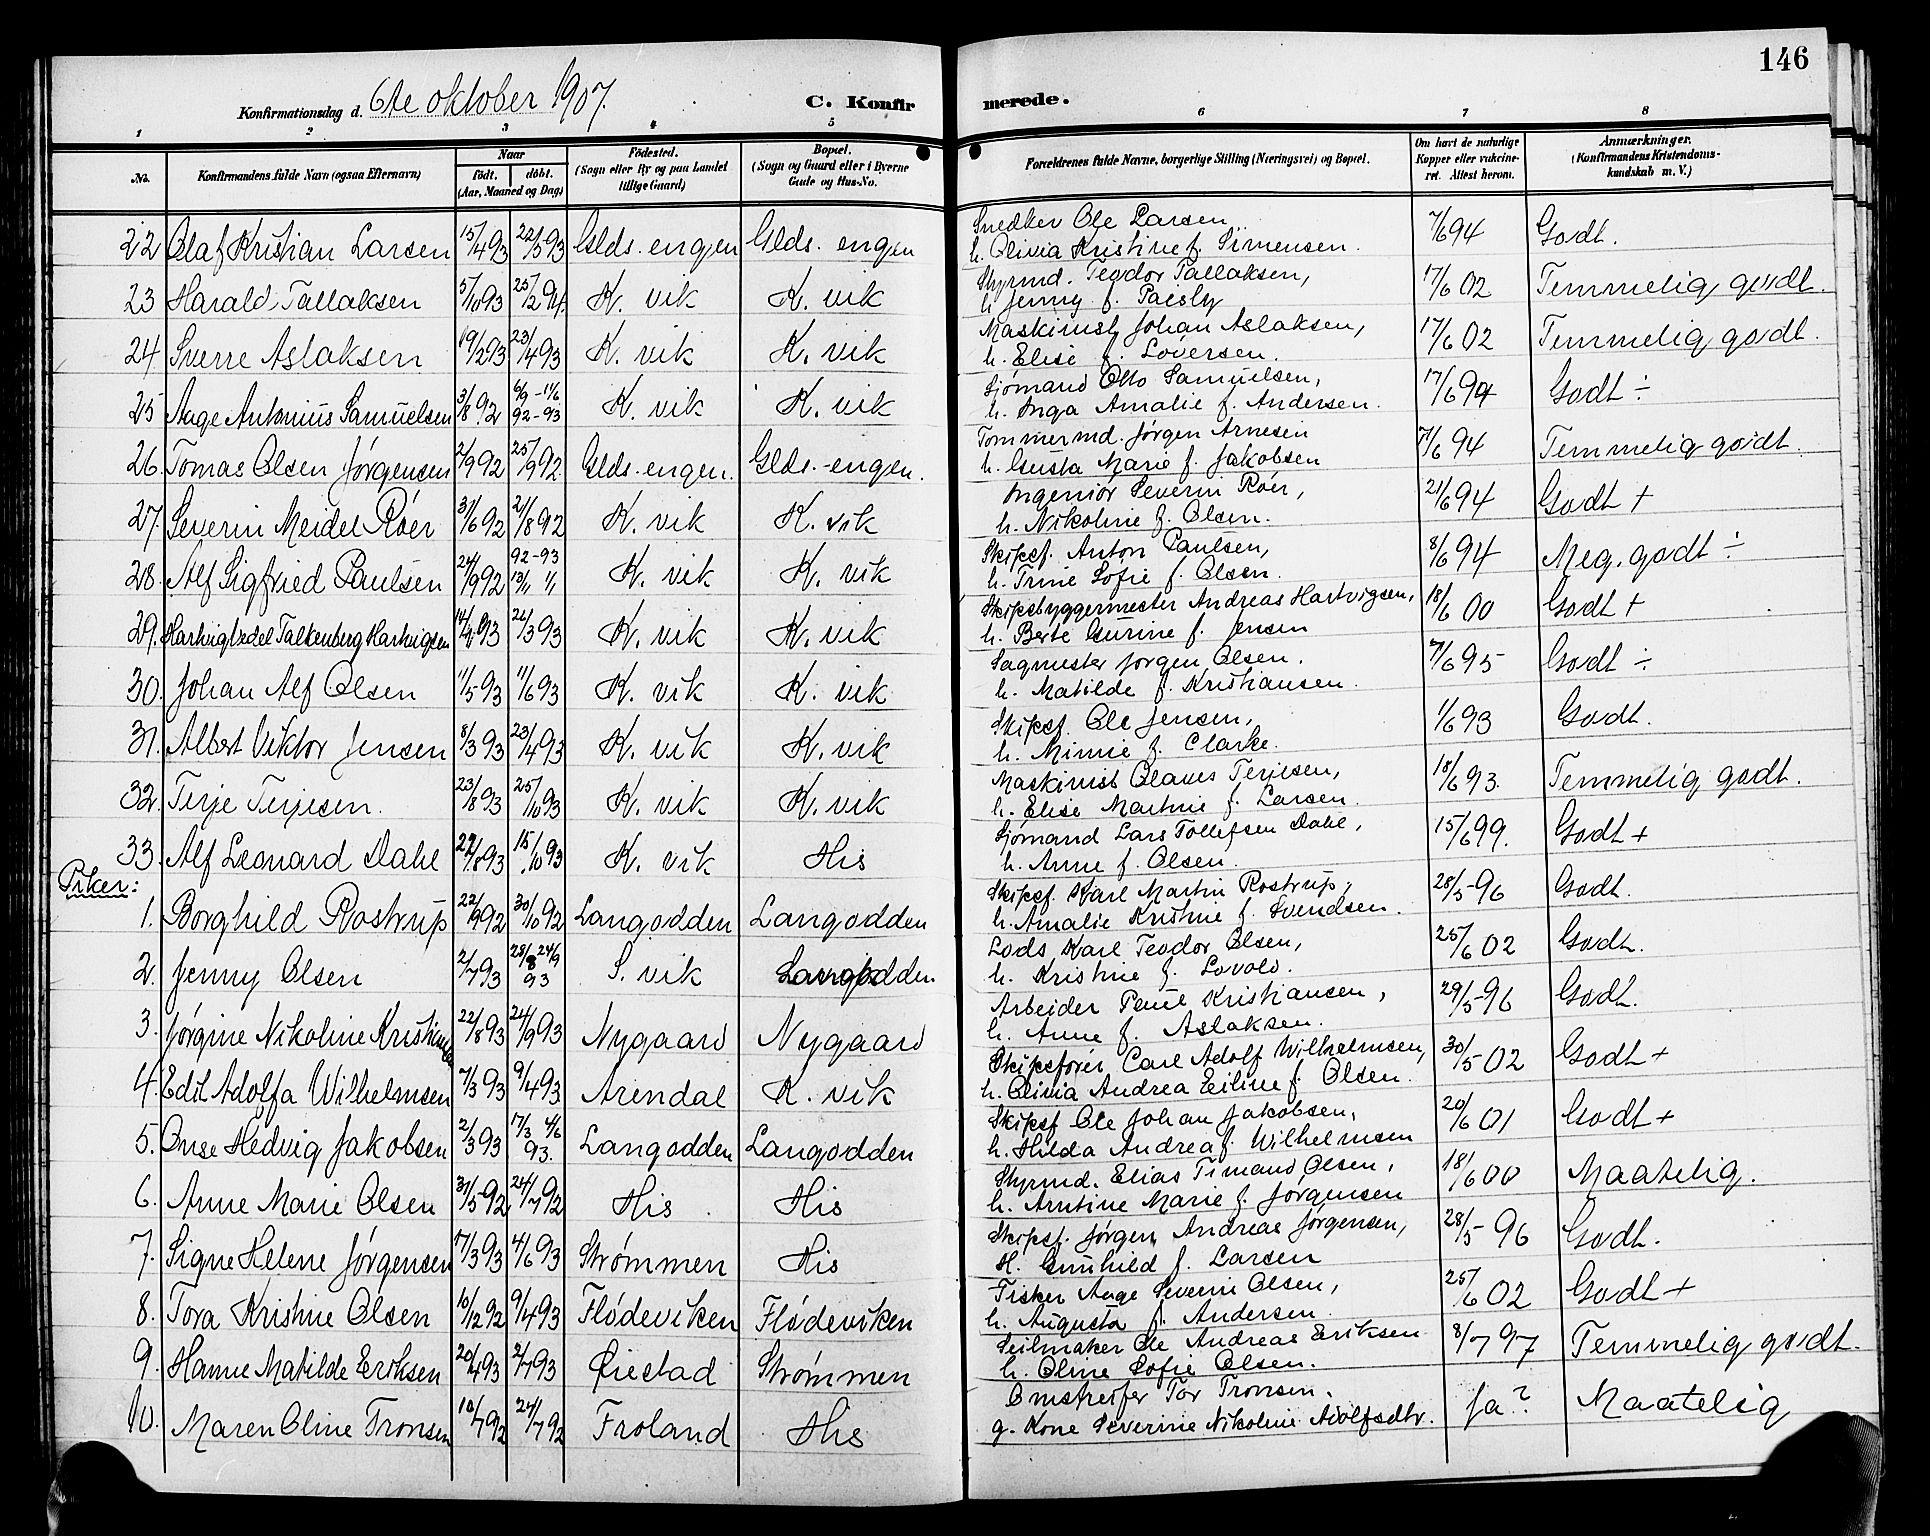 146
Konfirmationsdag d. 6te oktober 1907.
C. Konfirmerede.
1 2 3 4 5 6 7 8
No. Konfirmandens fulde Navn (ogsaa Efternavn) Naar født. døbt. (Aar, Maaned og Dag) Fødested. (Sogn eller By og paa Landet tillige Gaard) Bopæl. (Sogn og Gaard eller i Byerne Gade og Hus-No. Forældrenes fulde Navne, borgerlige Stilling (Næringsvei) og Bopæl. Om havt de naturlige Kopper eller vakcineret. Attest herom. Anmærkninger. (Konfirmandens Kristendomskundskab m. V.)
22 Olaf Kristian Larsen 15/4 93 22/5 93 Glds. engen Glds. engen Snedker Ole Larsen, 7/6 94 Godt.
h. Olivia Kristine f. Simensen.
23 Harald Tallaksen 5/10 93 25/2 94. K. vik K. vik Styrmd. Teodor Tallaksen, 17/6 02 Temmelig godt.
h. Jenny f. Paisly
24 Sverre Aslaksen 19/2 93 23/4 93 K. vik K. vik Maskinist Johan Aslaksen, 17/6 02 Temmelig godt.
h. Elise f. Loversen.
25 Aage Antonius Samuelsen 3/8 92 6/9 - 11/6 92 - 93 K. vik K. vik Sjømand Otto Samuelsen, 17/6 94 Godt ÷
h. Inga Amalie f. Andersen.
26. Tomas Olsen Jørgensen 2/9 92 25/9 92. Glds. engen. Glds. engen. Tømmermd. Jørgen Arnesen 7/6 94 Temmelig godt.
h. Gusta Marie f. Jakobsen
27. Severin Meidel Röer 31/6 92 21/8 92 K. vik K. vik Ingeniør Severin Röer, 21/6 94 Godt +
h. Nikoline f. Olsen.
28. Alf Sigfried Paulsen 24/9 92 92-93 13/11 " K. vik K. vik Skipsf. Anton Paulsen, 8/6 94 Meg. godt ÷
h. Trine Sofie f. Olsen.
29. Hartvig Wedel Falkenberg Hartvigsen 14/2 93 26/3 93 K. vik K. vik Skipsbyggermester Andreas Hartvigsen, 18/6 00 Godt +
h. Berte Gurine f. Jensen
30. Johan Alf Olsen 11/5 93 11/6 93 K. vik K. vik Sagmester Jørgen Olsen. 7/6 95 Godt ÷
h. Matilde f. Kristiansen.
31. Albert Viktor Jensen 8/3 93 23/4 93 K. vik K. vik Skipsf. Ole Jensen, 1/6 93 Godt.
h. Minnie f. Clarke.
32. Terje Terjesen. 23/8 93 25/10 93 K. vik K. vik Maskinist Olaves Terjesen, 18/6 93. Temmelig godt.
h. Elise Martine f. Larsen.
33. Alf Leonard Dahl 27/8 93 15/10 93 K. vik His Sjømand Lars Tollefsen Dahl, 15/6 99. Godt +
h. Anne f. Olsen.
Piker:
1. Borghild Rostrup 22/9 92 30/10 92 Langodden Langodden Skipsf. Karl Martin Rostrup, 28/5 - 96 Godt.
h. Amalie Kristine f. Svendsen.
2. Jenny Olsen 2/7 93 28/8 24/9 93 S. vik Langodden. Lods Karl Teodor Olsen, 25/6 02 Godt.
h. Kristine f. Lovold.
3. Jørgine Nikoline Kristiansen 22/8 93 24/9 93 Nygaard Nygaard Arbeider Paul Kristiansen, 29/5 - 96 Godt.
h. Anne f. Aslaksen.
4. Edit Adolfa Wilhelmsen 7/3 93 9/4 93 Arendal K. vik Skipsfører Carl Adolf Wilhelmsen, 30/5 02 Godt +
h. Olivia Andrea Eiline f. Olsen.
5. Onse Hedvig Jakobsen 2/3 93 17/3 4/6 93. Langodden Langodden Skipsf. Ole Johan Jakobsen, 20/6 01 Godt +
h. Hilda Andrea f. Wilhelmsen
6. Anne Marie Olsen 31/5 92 24/7 92 His His Styrmd. Elias Timand Olsen, 18/6 00 Maatelig.
h. Arntine Marie f. Jørgensen
7. Signe Helene Jørgensen 17/3 93 4/6 93 Strømmen His Skipsf. Jørgen Andreas Jørgensen, 28/5 - 96 Godt.
H. Gunhild f. Larsen
8. Tora Kristine Olsen 10/12 92 9/4 93 Flødeviken Flødeviken Fisker Aage Severin Olsen, 25/6 02 Godt +
h. Augusta f. Andersen.
9. Hanne Matilde Eriksen 20/4 93 2/7 93 Øiestad Strømmen Seilmaker Ole Andreas Eriksen 8/7 97 Temmelig godt.
h. Oline Sofie Olsen.
10. Maren Oline Tronsen 10/7 92 24/7 92 Froland His Omstreifer Tor Tronsen. Ja? Maatelig
g. Kone Severine Nikoline Adolfsdtr.